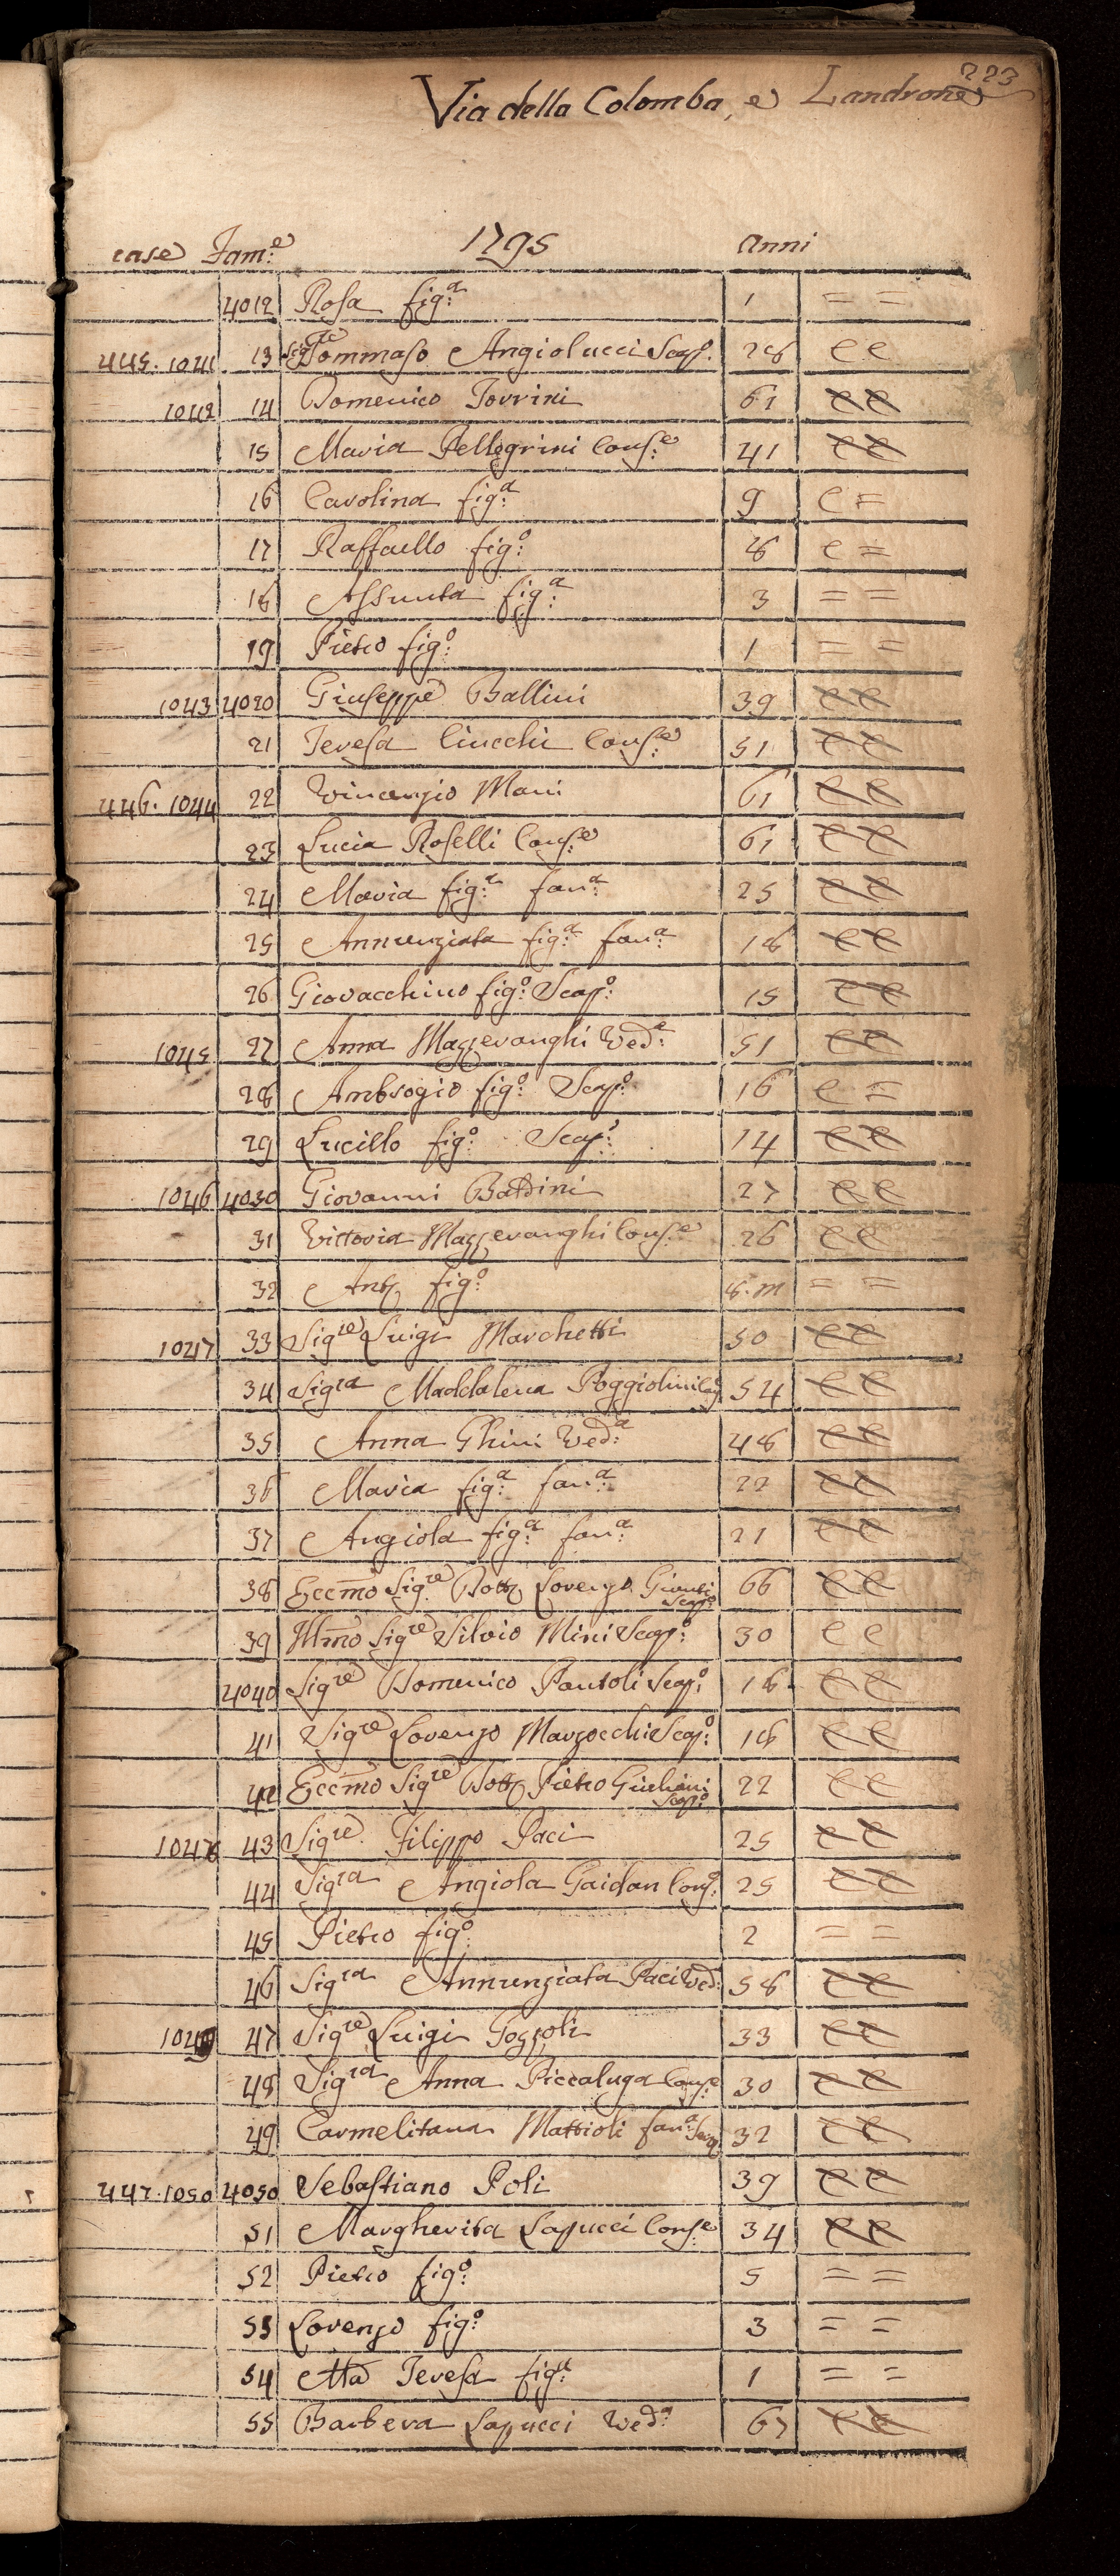 223
Via della Colomba, e Landrone
case Fam:e 1795 anni
4012 Rosa fig:a 1 = =
445. 1041 13 Sigre Tommaso Angiolucci Scap. 28 e e
1042 14 Domenico Torrini 61 e e
15 Maria Pellegrini Cons:e 41 e e
16 Carolina fig:a 9 e =
17 Raffaello fig:o 8 e =
18 Assunta fig:a 3 = =
19 Pietro fig:o 1 = =
1043 4020 Giuseppe Ballini 39 e e
21 Teresa Ciucchi Cons:e 51 e e
446. 1044 22 Vincenzio Mani 61 e e
23 Lucia Roselli Cons:e 61 e e
24 Maria fig:a fan:a 25 e e
25 Annunziata fig:a fan:a 18 e e
26 Giovacchino fig:o Scap:o 15 e e
1045 27 Anna Mazzeranghi Ved:a 51 e e
28 Ambrogio fig:o Scap:o 16 e =
29 Lucillo fig:o Scap:o 14 e e
1046 4030 Giovanni Battini 27 e e
31 Vittoria Mazzeranghi Cons:e 26 e e
32 Ant. fig:o 8. m = =
1047 33 Sigre Luigi Marchetti 50 e e
34 Sigra Maddalena Poggiolini Con 54 e e
35 Anna Ghini Ved:a 48 e e
36 Maria fig:a fan:a 22 e e
37 Angiola fig:a fan:a 21 e e
38 Eccmo Sigre Dott Lorenzo Scap:o 66 e e
39 Illmo Sigre Silvio Mini Scap:o 30 e e
4040 Sigre Domenico Pantoli Scap:o 18 e e
41 Sigre Lorenzo Marzocchi Scap:o 18 e e
42 Eccmo Sigre Dott Pietro Scap:o 22 e e
1048 43 Sigre Filippo Paci 25 e e
44 Sigra Angiola Gaidan Cons: 25 e e
45 Pietro fig:o 2 = =
46 Sigra Annunziata Paci Ved: 58 e e
1049 47 Sigre Luigi Pozzoli 33 e e
48 Sigra Anna Piccaluga Cons:e 30 e e
49 Carmelitana Mattioli fan:a 32 e e
447. 1050 4050 Sebastiano Poli 39 e e
51 Margherita Lapucci Cons:e 34 e e
52 Pietro fig:o 5 = =
53 Lorenzo fig:o 3 = =
54 Ma Teresa fig:a 1 = =
55 Barbera Lapucci Ved:a 67 e e